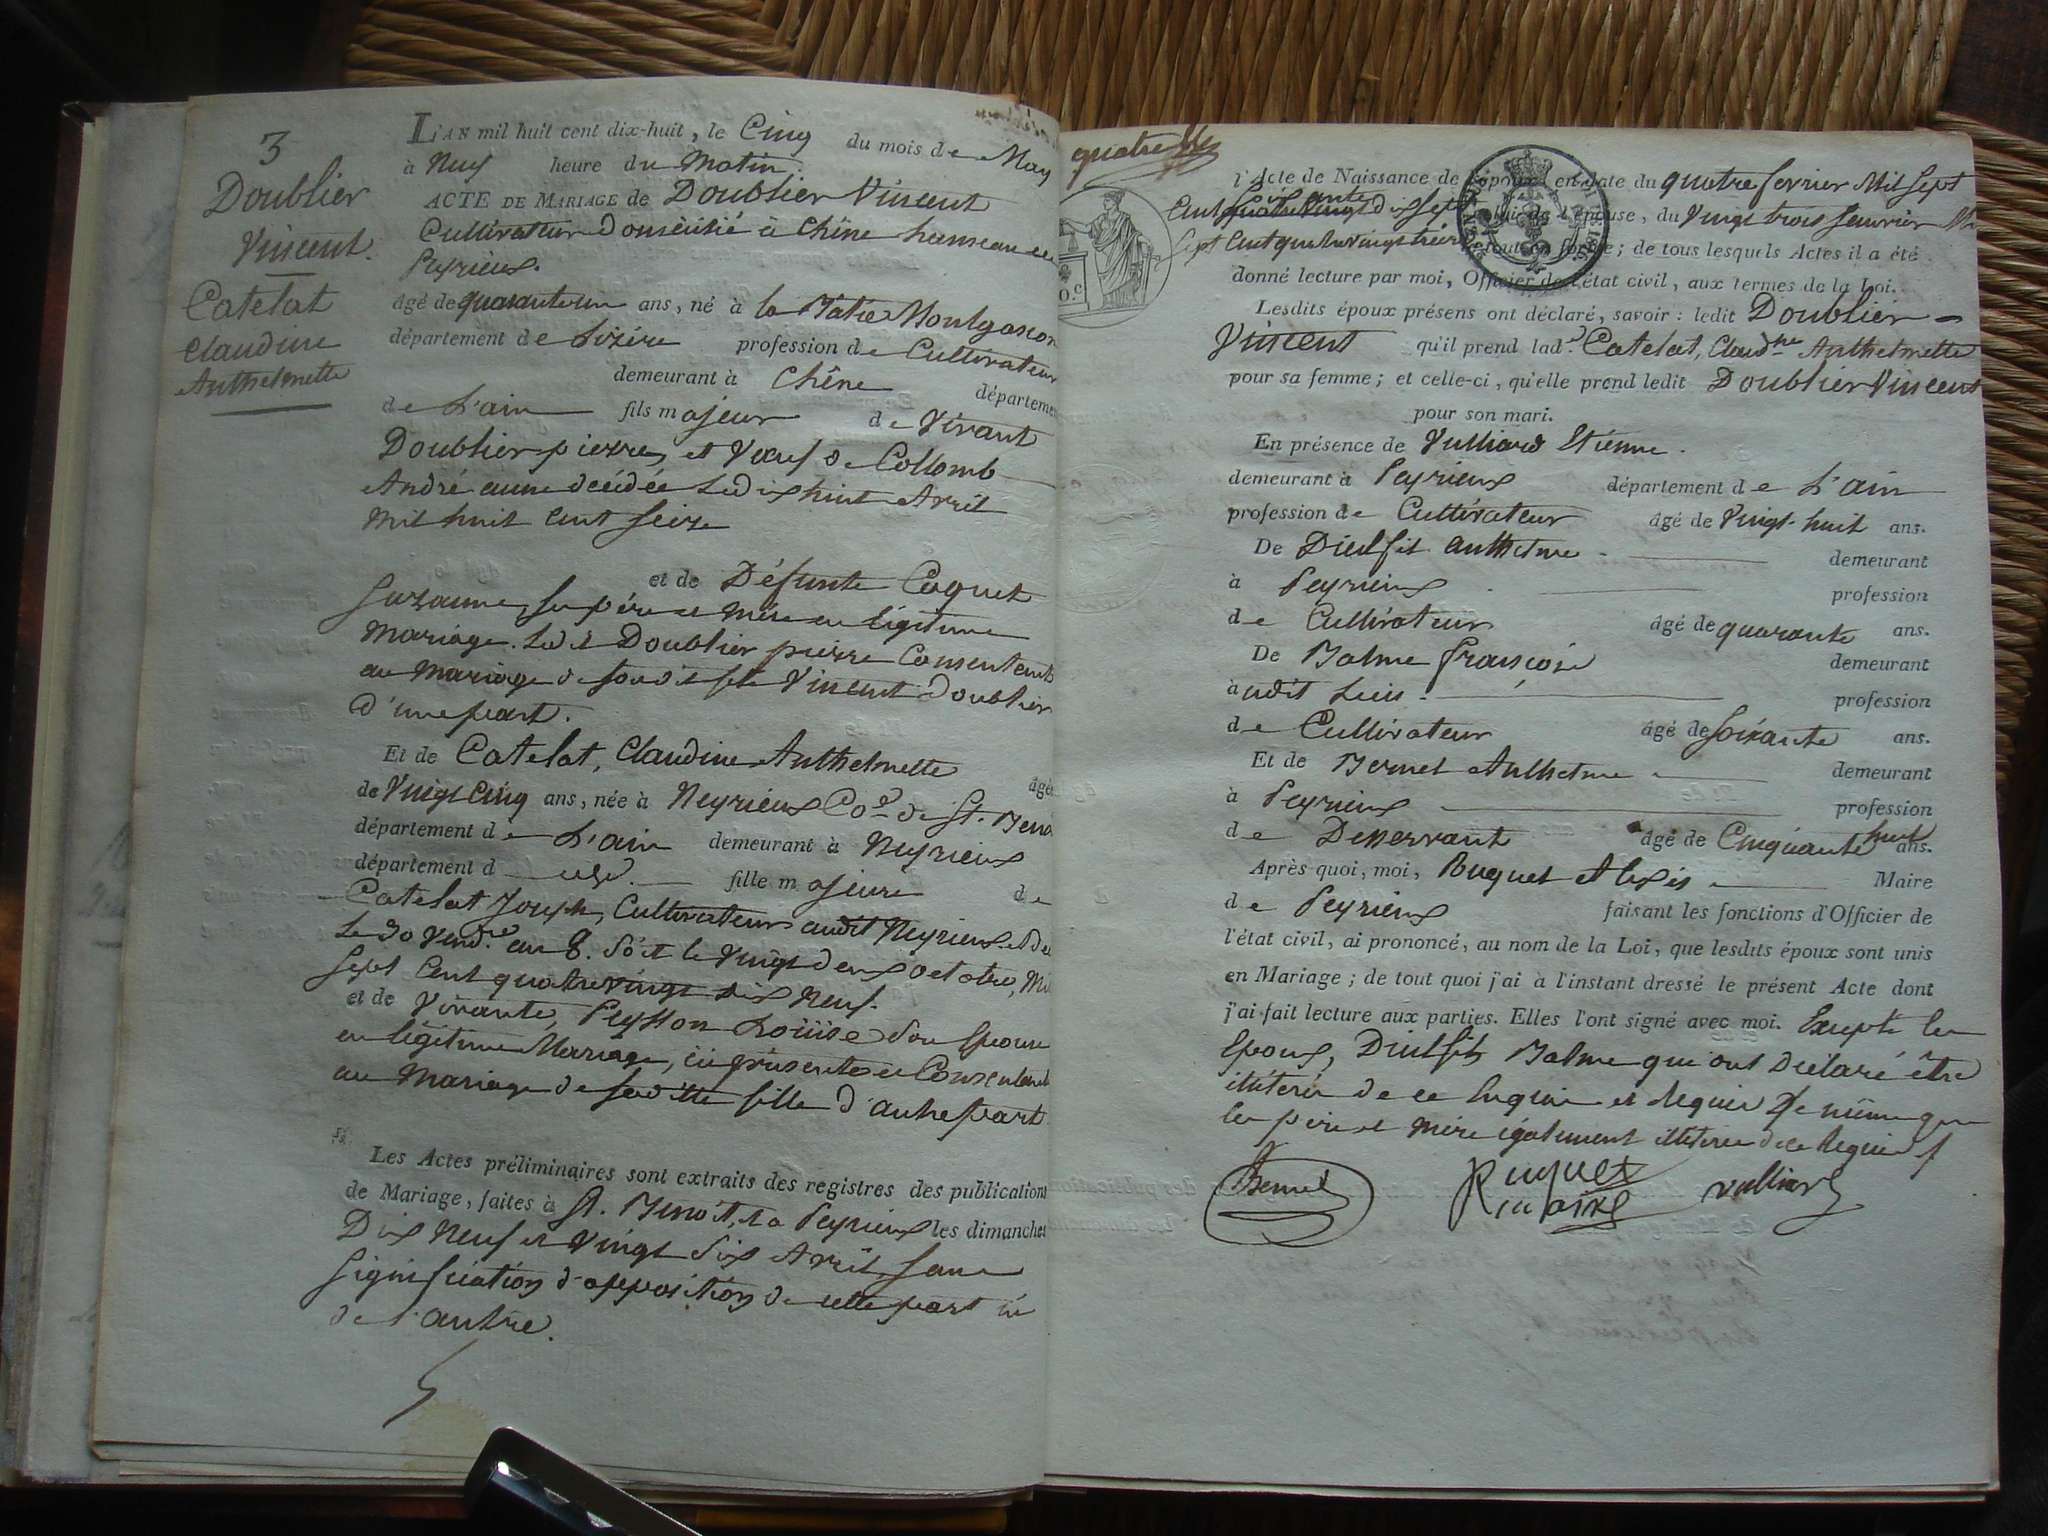 3
Doublier
Vincent.
Catelat
Claudine
Anthelmette
L'AN mil huit cent dix-huit, le Cinq du mois de May
à Neuf heure du Matin.
ACTE DE MARIAGE de Doublier Vincent
Cultivateur Domicilié à Chêne hameau de
Peyrieux.
âgé de quarante un ans, né à la Bâtie Montgascon
département de Lizère profession de Cultivateur
demeurant à Chêne départeme
de L'ain fils majeur de Vivant
Doublier pierre, et Vœuf de Collomb
André anne décédée Le dix huit Avril
Mil huit Cent Seize
et de Défunte Coquet
Suzanne, Ses père et Mère en légitime
Mariage. Led.t Doublier pierre Consentent
au Mariage de sondit fils Vincent Doublier
d'une part.
Et de Catelat, Claudine Anthelmette âgée
de Vingt Cinq ans, née à Neyrieux Co.e de St. Benoi
département de L'ain demeurant à Neyrieux
département d fille majeure de
Catelat Joseph, Cultivateur audit Neyrieux
Le 30 Vend.re an 8. Soit le Vingt deux octobre, Mil
Sept Cent quatrevingt dix Neuf.
et de Vivante, Peysson Loüise Son Epouse
en légitime Mariage, ici présente et Consentante
au Mariage de sa ditte fille d'autre part
Les Actes préliminaires sont extraits des registres des publications
de Mariage, faites à St. Benoit, et à Peyrieux les dimanches
Dix Neuf et Vingt Six Avril, Sans
Signification d'opposition de cette part ni
de l'autre.
l'Acte de Naissance de l'époux en date du quatre fevrier Mil Sept
Cent Soixante dix Sept celui de l'épouse, du Vingt trois Janvier Mil
Sept Cent quatrevingt treize le tout en forme; de tous lesquels Actes il a été
donné lecture par moi, Officier de l'état civil, aux termes de la Loi.
Lesdits époux présens ont déclaré, savoir : ledit Doublier
Vincent qu'il prend lad.e Catelat, Claud.ne Anthelmette
pour sa femme; et celle-ci, qu'elle prend ledit Doublier Vincent
pour son mari.
En présence de Vulliard Etienne.
demeurant à Peyrieux département de L'ain
profession de Cultivateur âgé de Vingt-huit ans.
De Dieulfit Anthelme demeurant
à Peyrieux profession
de Cultivateur âgé de quarante ans.
De Balme François demeurant
à udit Lieu profession
de Cultivateur âgé de Soixante ans.
Et de Bernet Anthelme demeurant
à Peyrieux profession
de Desservant âgé de Cinquante huit ans.
Après quoi, moi, Buquet Alexis Maire
de Peyrieux faisant les fonctions d'Officier de
l'état civil, ai prononcé, au nom de la Loi, que lesdits époux sont unis
en Mariage; de tout quoi j'ai à l'instant dressé le présent Acte dont
j'ai fait lecture aux parties. Elles l'ont signé avec moi. Excepté les
Epoux, Dieulfit, Balme qui ont déclaré être
illiterés de ce Enquis et Requis De même que
les père et mère également illiterés de ce Requis
Bernet Buquet Vulliard
maire